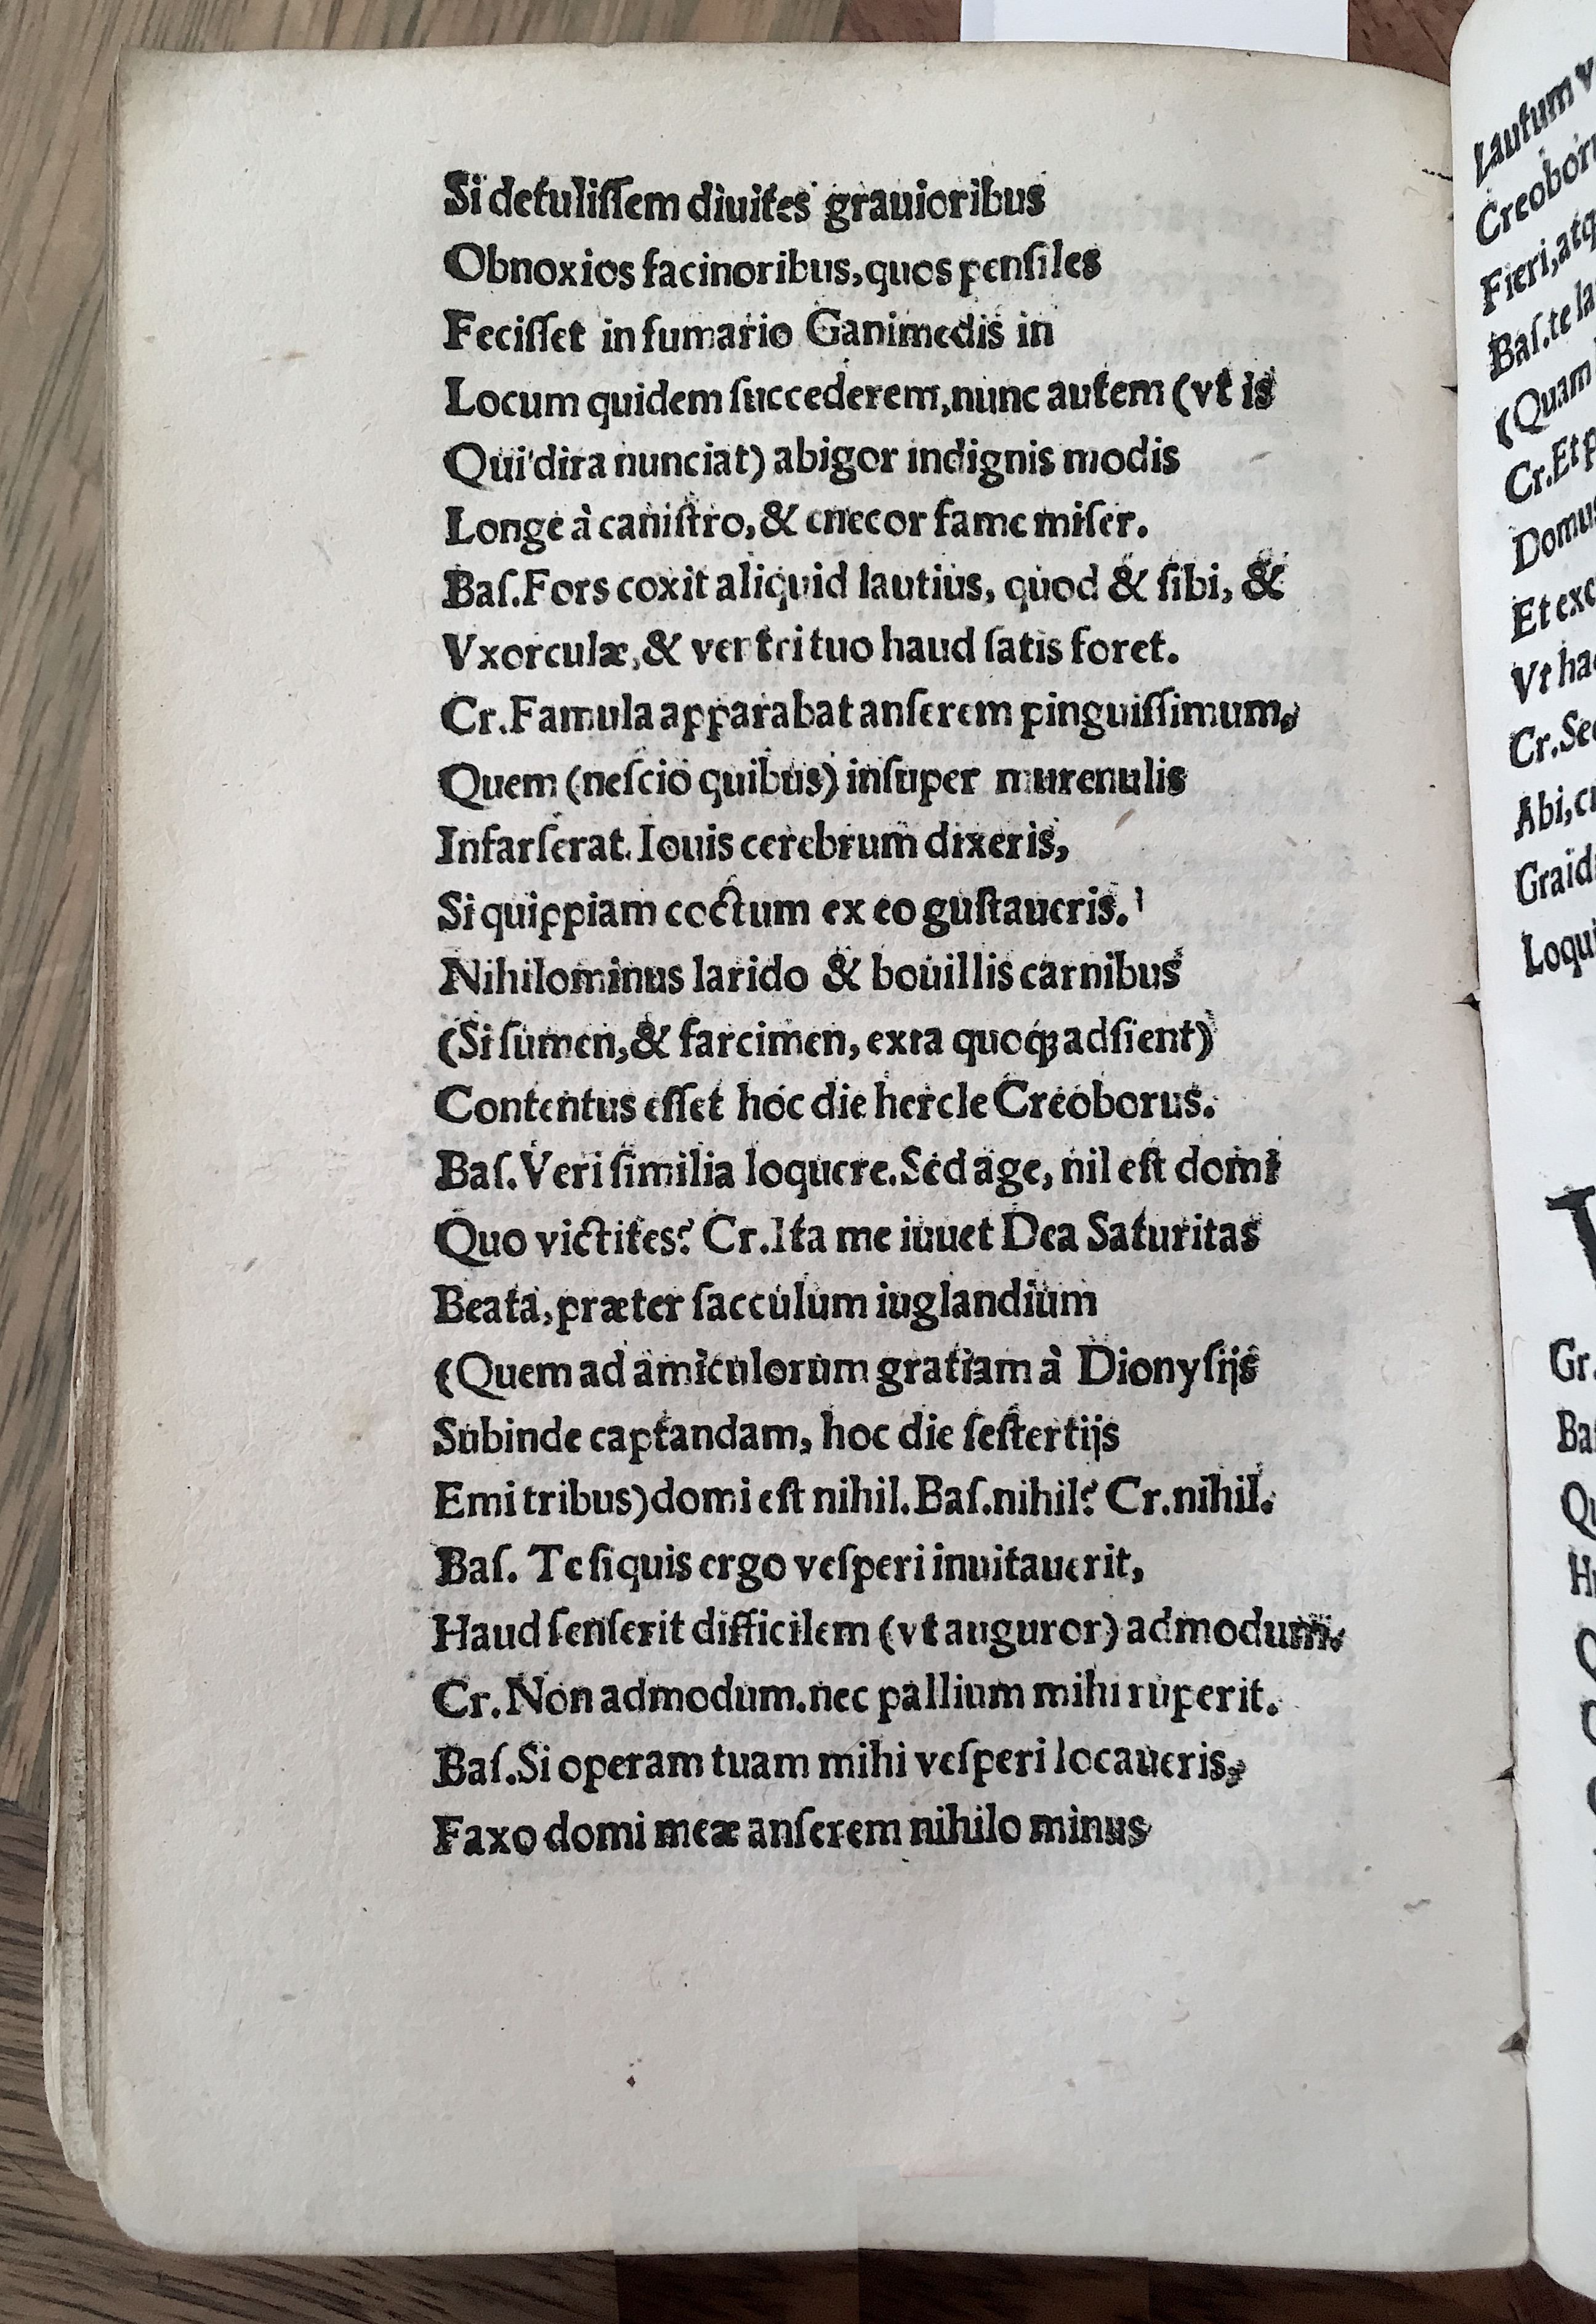 Si detuliſſem diuites grauioribus
Obnoxios facinoribus, quos penſiles
Feciſſet in fumario Ganimedis in
Locum quidem ſuccederem, nunc autem (vt is
Qui dira nunciat) abigor indignis modis
Longe à caniſtro, & enecor fame miſer.
Baſ. Fors coxit aliquid lautius, quod & ſibi, &
Vxorculæ, & ventri tuo haud ſatis foret.
Cr. Famula apparabat anſerem pinguiſſimum,
Quem (neſcio quibus) inſuper murenulis
Infarſerat. Iouis cerebrum dixeris,
Si quippiam coctum ex eo guſtaueris.
Nihilominus larido & bouillis carnibus
(Si ſumen, & farcimen, exta quoqꝫ adſient)
Contentus eſſet hoc die hercle Creoborus.
Baſ. Veri ſimilia loquere. Sed age, nil eſt domi
Quo victites? Cr. Ita me iuuet Dea Saturitas
Beata, præter ſacculum iuglandium
(Quem ad amiculorum gratiam à Dionyſijs
Subinde captandam, hoc die ſeſtertijs
Emi tribus) domi eſt nihil. Baſ. nihil? Cr. nihil.
Baſ. Te ſiquis ergo veſperi inuitauerit,
Haud ſenſerit difficilem (vt auguror) admodum.
Cr. Non admodum. nec pallium mihi ruperit.
Baſ. Si operam tuam mihi veſperi locaueris,
Faxo domi meæ anſerem nihilo minus
Lautum
Creobor
Fieri, atq
Baſ. te la
(Quam
Cr. Et p
Domus
Et exc
Vt ha
Cr. Se
Abi, c
Graid
Loqui
V
Gr.
Ba
Qu
H
Q